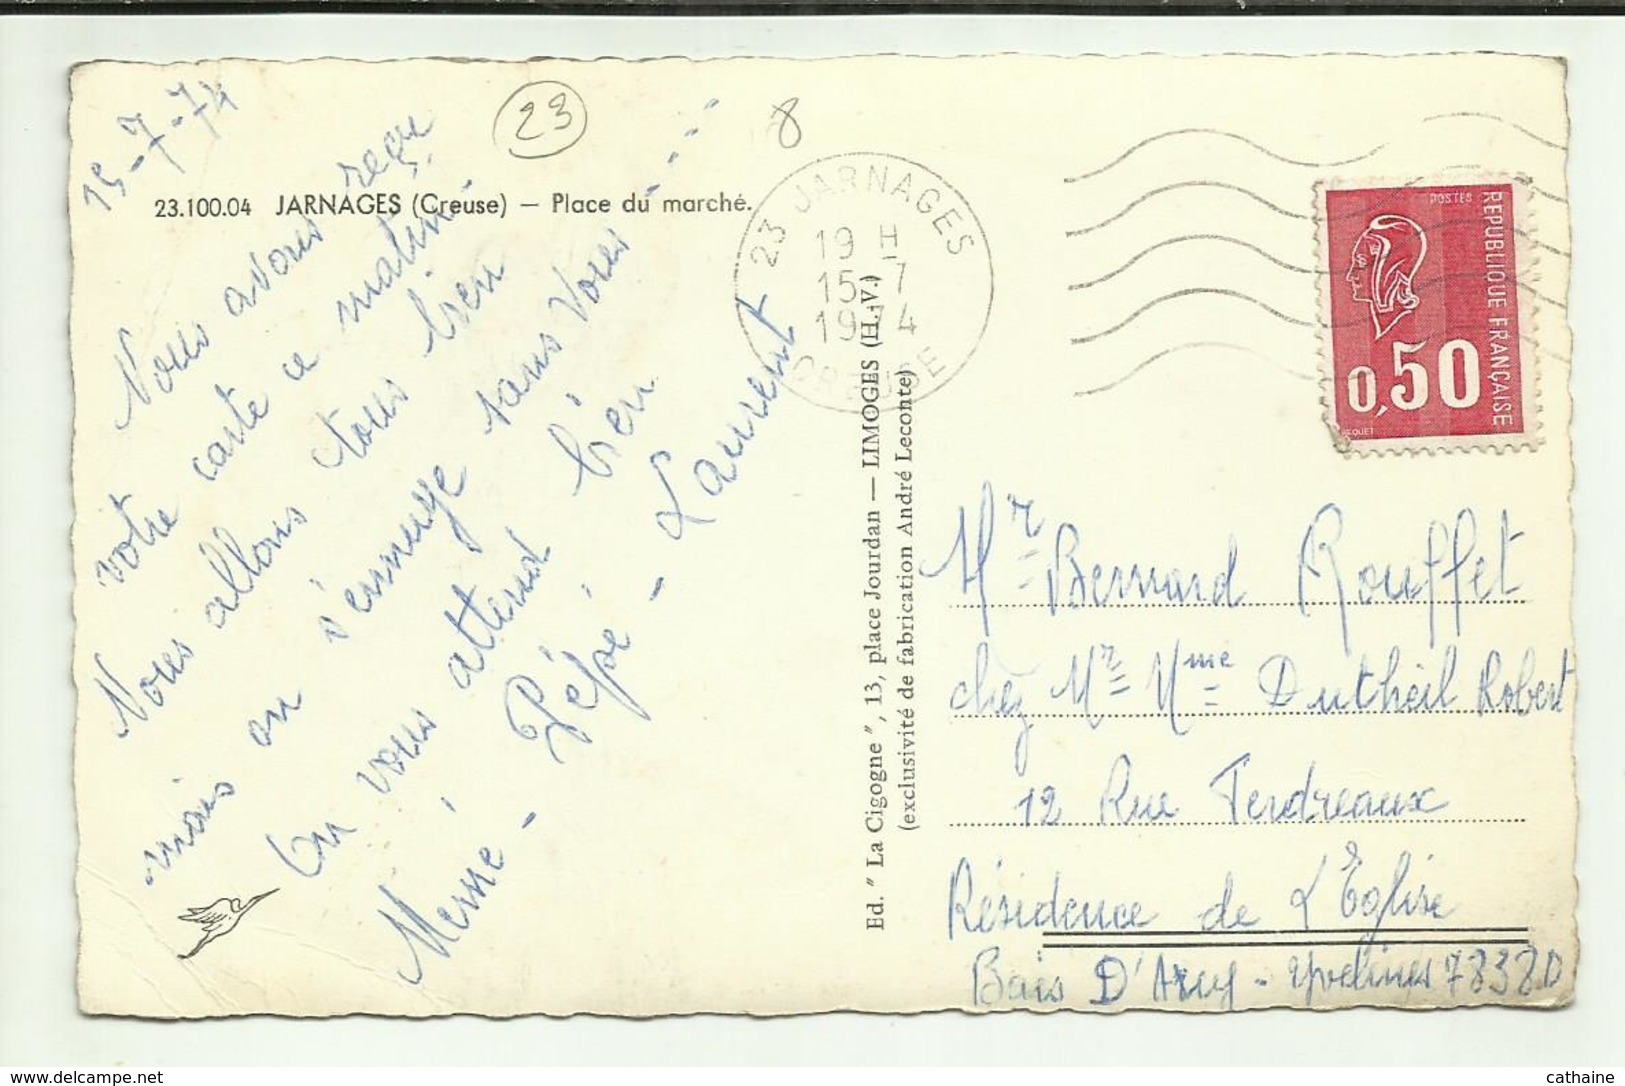 15-7-74
23
8
23.100.04 JARNAGES (Creuse) — Place du marché.
Nous avons reçu
votre carte ce matin.
Nous allons tous bien
mais on s'ennuye sans vous ....
On vous attend bien
Mémé - Pépé - Laurent
23 JARNAGES
19 H
15 - 7
1974
CREUSE
Ed. "La Cigogne", 13, place Jourdan — LIMOGES (H.-V.)
(exclusivité de fabrication André Leconte)
POSTES
REPUBLIQUE FRANÇAISE
0,50
Mr Bernard Rouffet
chez Mr Mme Dutheil Robert
12 Rue Perdreaux
Résidence de L'Église
Bois D'Arcy - Yvelines 78380
delcampe.net
cathaine